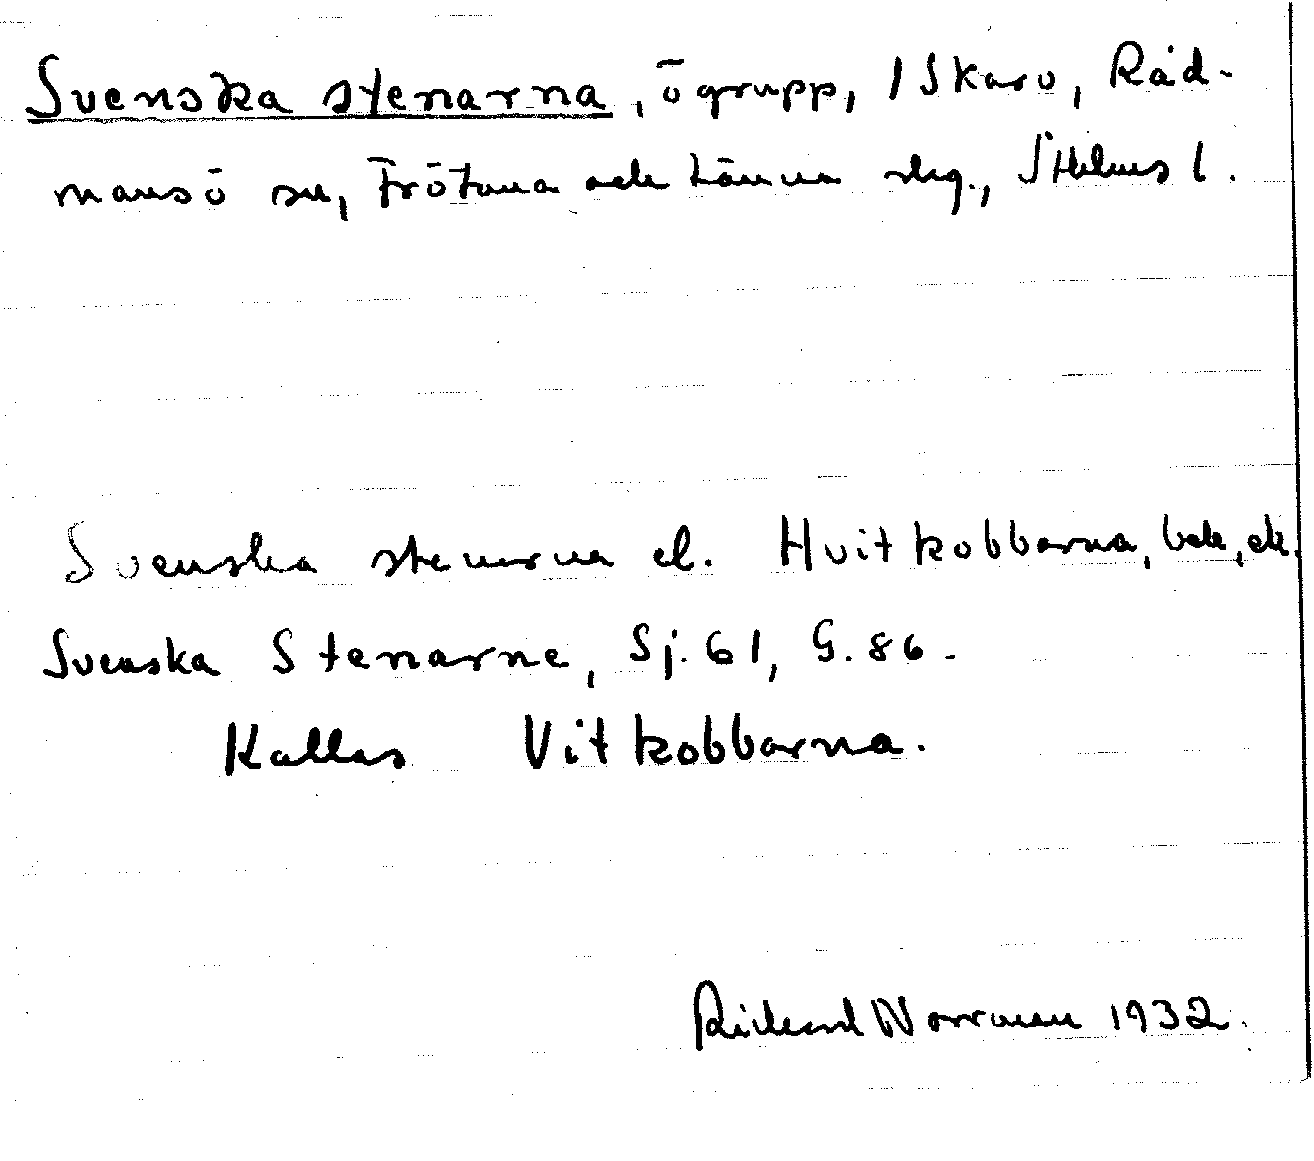 Svenska stenarna, ögrupp, i Skaro, Råd-
mansö sn, Frötuna och Länna skg., Sthlms l.
Svenska stenarna el. Hvitkobbarna, bek, ek.
Svenska Stenarne, Sj. 61, G. 86.
Kallas Vitkobbarna.
Rickard Norrman 1932.